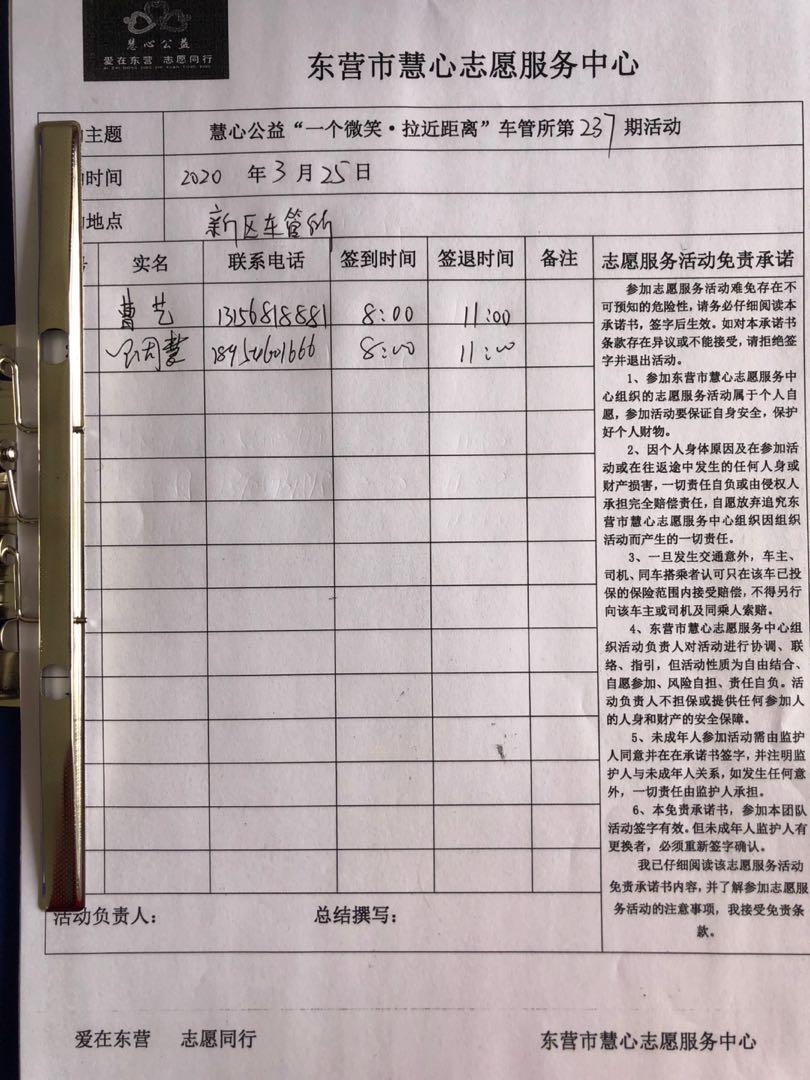 慧心公益
爱在东营 志愿同行
东营市慧心志愿服务中心
主题 慧心公益“一个微笑·拉近距离”车管所第237期活动
时间 2020 年3月25日
地点 新区车管所
实名 联系电话 签到时间 签退时间 备注 志愿服务活动免责承诺
曹艺 13156818881 8:00 11:00
8:00 11:00
参加志愿服务活动难免存在不
可预知的危险性,请务必仔细阅读本
承诺书,签字后生效。如对本承诺书
条款存在异议或不能接受,请拒绝签
字并退出活动。
1、参加东营市慧心志愿服务中
心组织的志愿服务活动属于个人自
愿,参加活动要保证自身安全,保护
好个人财物。
2、因个人身体原因及在参加活
动或在往返途中发生的任何人身或
财产损害,一切责任自负或由侵权人
承担完全赔偿责任,自愿放弃追究东
营市慧心志愿服务中心组织因组织
活动而产生的一切责任。
3、一旦发生交通意外,车主、
司机、同车搭乘者认可只在该车已投
保的保险范围内接受赔偿,不得另行
向该车主或司机及同乘人索赔。
4、东营市慧心志愿服务中心组
织活动负责人对活动进行协调、联
络、指引,但活动性质为自由结合、
自愿参加、风险自担、责任自负。活
动负责人不担保或提供任何参加人
的人身和财产的安全保障。
5、未成年人参加活动需由监护
人同意并在在承诺书签字,并注明监
护人与未成年人关系,如发生任何意
外,一切责任由监护人承担。
6、本免责承诺书,参加本团队
活动签字有效。但未成年人监护人有
更换者,必须重新签字确认。
我已仔细阅读该志愿服务活动
免责承诺书内容,并了解参加志愿服
务活动的注意事项,我接受免责条
款。
活动负责人: 总结撰写:
爱在东营 志愿同行 东营市慧心志愿服务中心